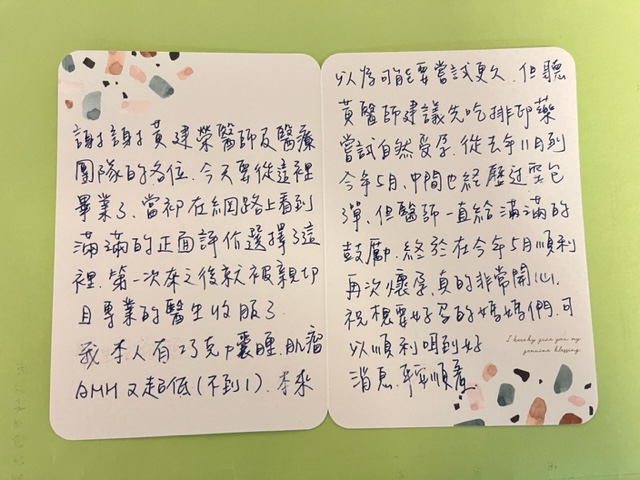 謝謝黃建榮醫師及醫療
團隊的各位，今天要從這裡
畢業了，當初在網路上看到
滿滿的正面評價選擇了這
裡，第一次來之後就被親切
且專業的醫生收服了
我本人有巧克力囊腫，肌瘤
AMH又超低(不到1)，本來
以為可能要嘗試更久，但聽
黃醫師建議先吃排卵藥
嘗試自然受孕，從去年11月到
今年5月，中間也經歷過空包
彈，但醫師一直給滿滿的
鼓勵，終於在今年5月順利
再次懷孕，真的非常開心，
祝想要好孕的媽媽們，可
以順利唷到好
消息，平安順產
I hereby give you my
genuine blessing.